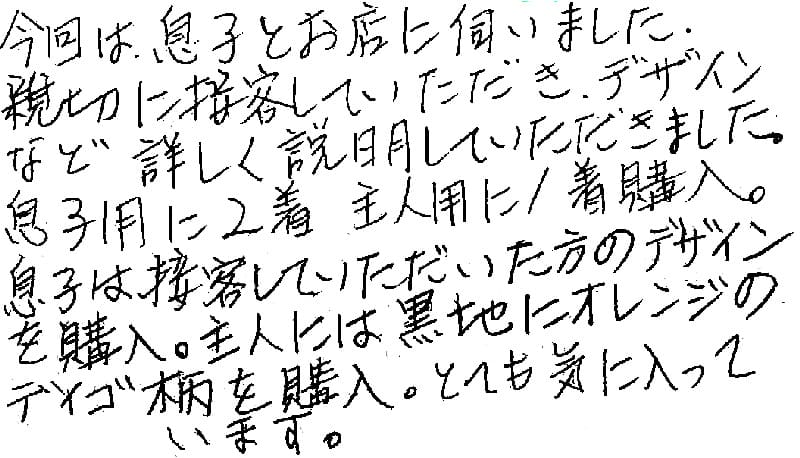 今回は、息子とお店に伺いました.
親切に接客していただき、デザイン
など詳しく説明していただきました。
息子用に2着 主人用に1着購入。
息子は、接客していただいた方のデザイン
を購入。主人には黒地にオレンジの
デイゴ柄を購入。とても気に入って
います。